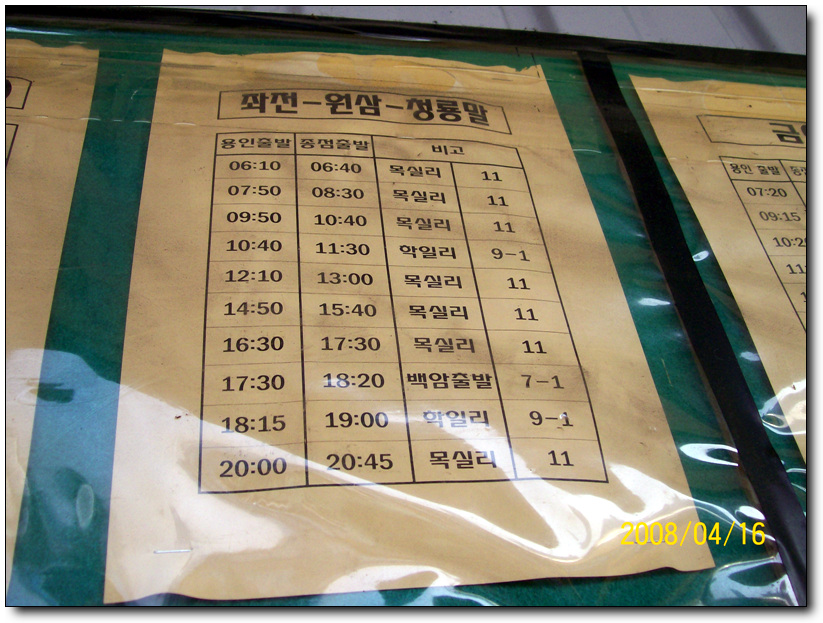 좌전-원삼-청룡말
용인출발 종점출발 비고
06:10 06:40 목실리 11
07:50 08:30 목실리 11
09:50 10:40 목실리 11
10:40 11:30 학일리 9-1
12:10 13:00 목실리 11
14:50 15:40 목실리 11
16:30 17:30 목실리 11
17:30 18:20 백암출발 7-1
18:15 19:00 학일리 9-1
20:00 20:45 목실리 11
용인 출발
07:20
09:15
2008/04/16